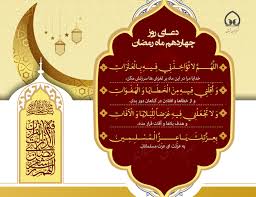 دعای روز
چهاردهم ماه رمضان
اَللّهُمَّ لا تُؤاخِذْنی فیهِ بِالْعَثَراتِ
خدایا مرا در این ماه بر لغزش ها سرزنش مکن،
وَ اَقِلْنی فیهِ مِنَ الْخَطایا وَ الْهَفَواتِ
و از خطاها و افتادن در گناهان دور بدار،
وَ لا تَجْعَلْنی فیهِ غَرَضاً لِلْبَلایا وَ الْآفاتِ
و هدف بلاها و آفات قرار مده،
بِعِزَّتِکَ یا عِزَّ الْمُسْلِمینَ
به عزتت ای عزت مسلمانان